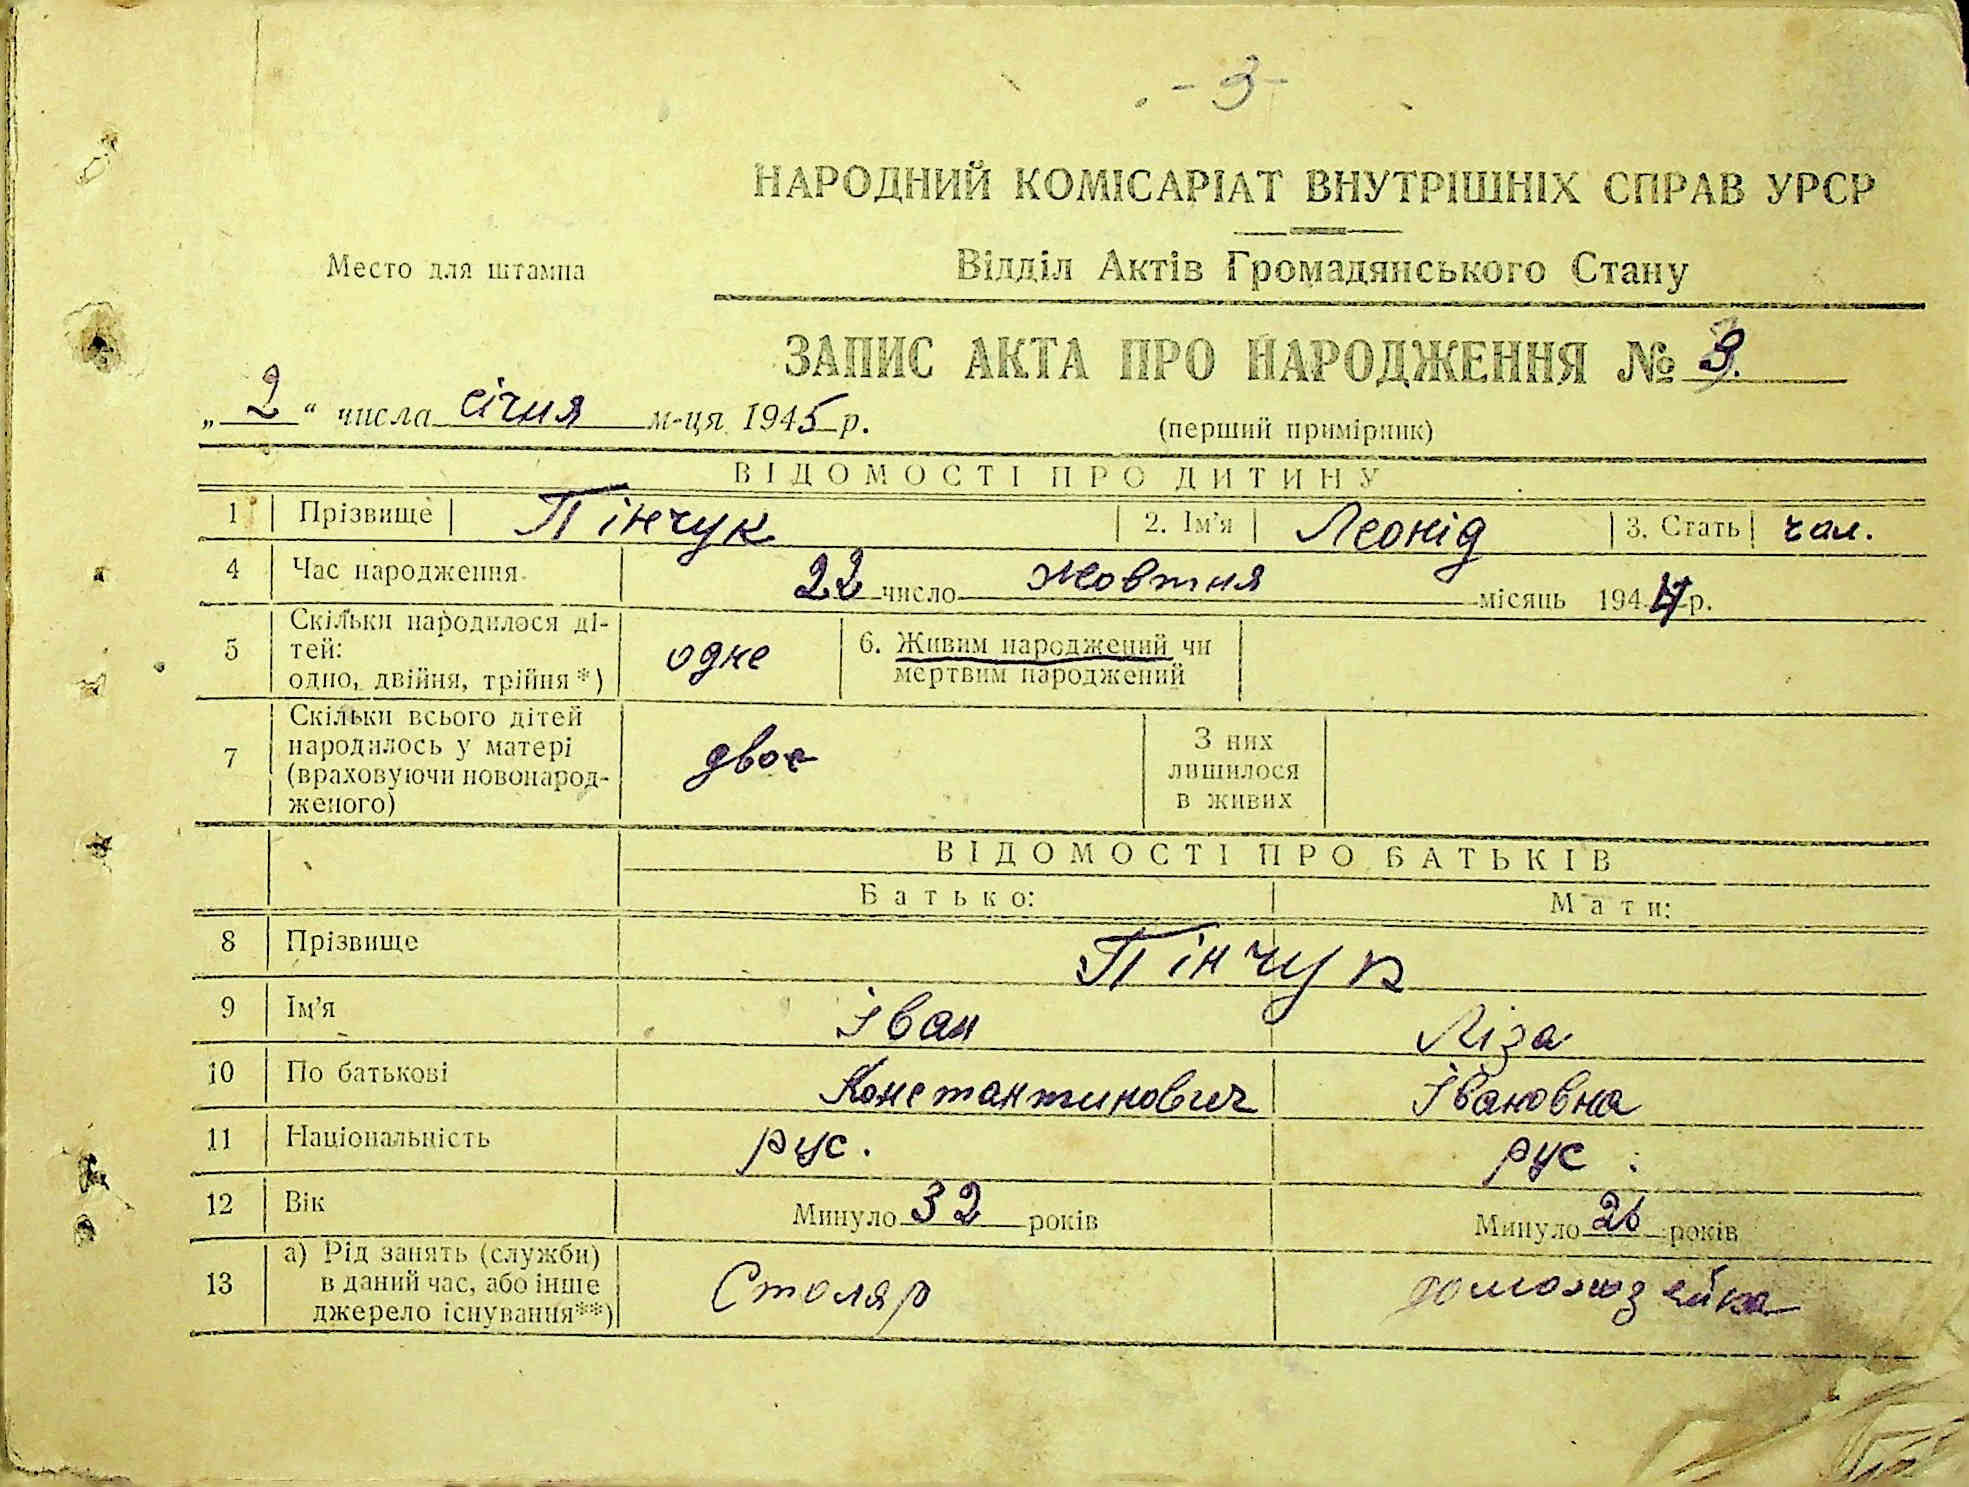 - 3 -
НАРОДНИЙ КОМІСАРІАТ ВНУТРІШНІХ СПРАВ УРСР
Место для штампа
Відділ Актів Громадянського Стану
ЗАПИС АКТА ПРО НАРОДЖЕННЯ № 3.
„ 2 “ числа січня м-ця 1945 р.
(перший примірник)
ВІДОМОСТІ ПРО ДИТИНУ
1 Прізвище Пінчук 2. Ім’я Леонід 3. Стать чол.
4 Час народження 22 число жовтня місяць 1944 р.
5 Скільки народилося ді-
тей:
одно, двійня, трійня *) одне 6. Живим народжений чи
мертвим народжений
7 Скільки всього дітей
народилось у матері
(враховуючи новонарод-
женого) двоє З них
лишилося
в живих
ВІДОМОСТІ ПРО БАТЬКІВ
Батько: Мати:
8 Прізвище Пінчук
9 Ім’я Іван Ліза
10 По батькові Константинович Івановна
11 Національність рус. рус.
12 Вік Минуло 32 років Минуло 26 років
13 а) Рід занять (служби)
в даний час, або інше
джерело існування**) Столяр домохозяйка